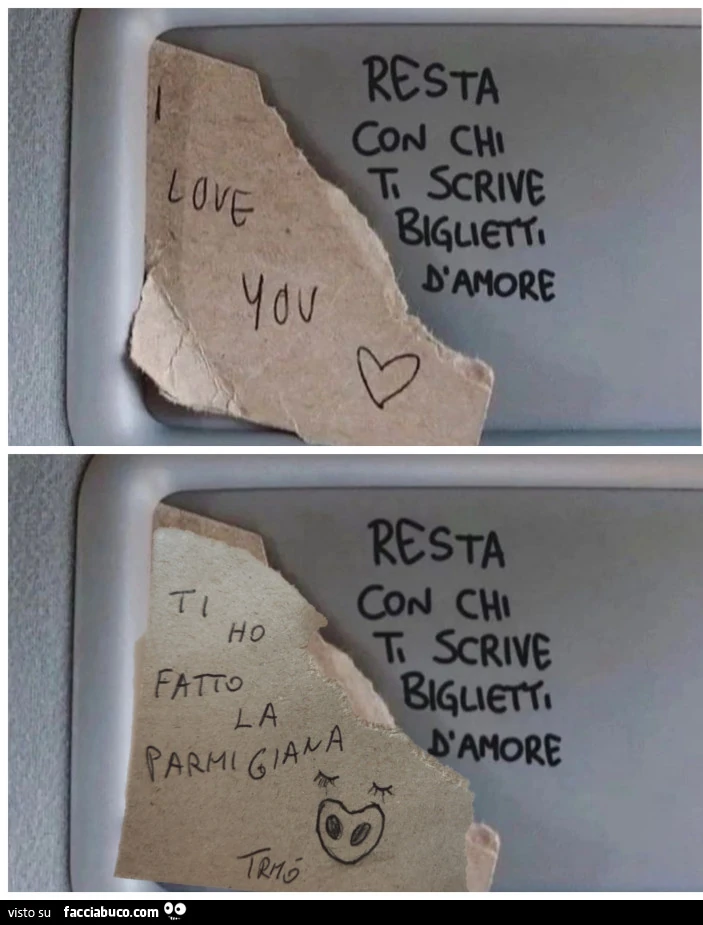 I
LOVE
YOU
RESTA
CON CHI
TI SCRIVE
BIGLIETTI
D'AMORE
TI
HO
FATTO
LA
PARMIGIANA
TRMÓ
RESTA
CON CHI
TI SCRIVE
BIGLIETTI
D'AMORE
visto su facciabuco.com